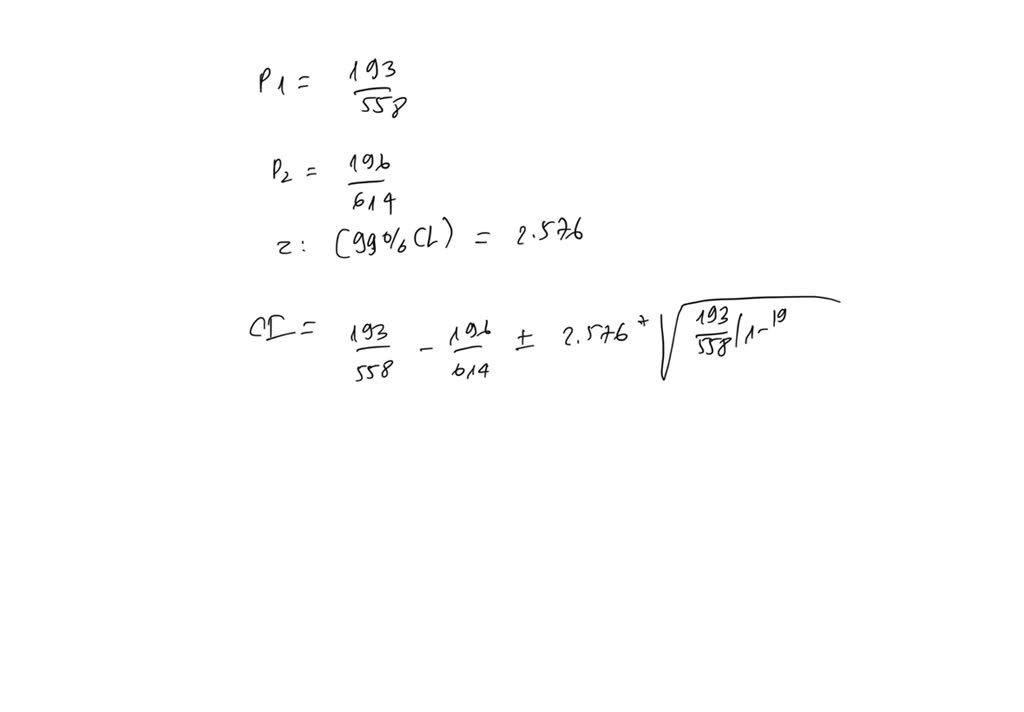 P1 = 193/558
P2 = 196/614
z: (99% CL) = 2.576
CI = 193/558 - 196/614 ± 2.576 * √193/558 (1-19